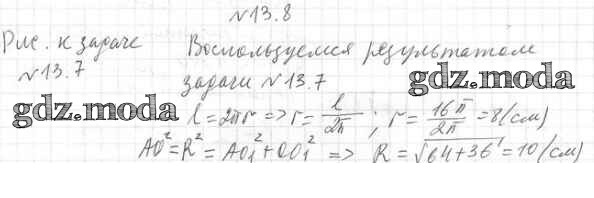 №13.8
Рис. к задаче
№13.7
Воспользуемся результатом
задачи №13.7
gdz.moda
gdz.moda
l = 2πr => r = l/2π ; r = 16π/2π = 8 (см)
AO² = R² = AO₁² + OO₁² => R = √64+36 = 10 (см)